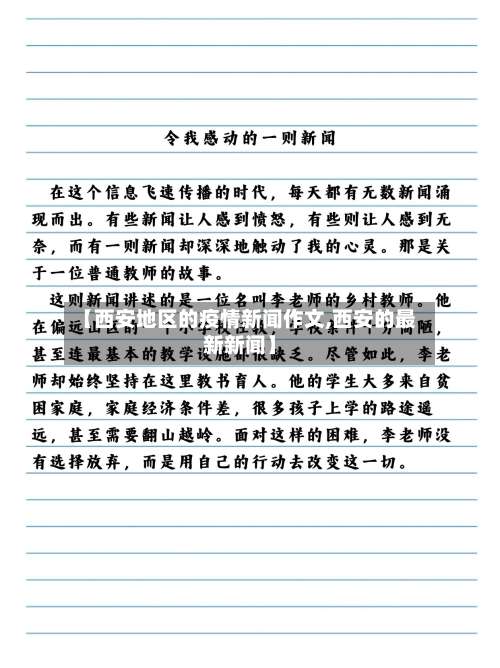 令我感动的一则新闻
在这个信息飞速传播的时代，每天都有无数新闻涌
现而出。有些新闻让人感到愤怒，有些则让人感到无
奈，而有一则新闻却深深地触动了我的心灵。那是关
于一位普通教师的故事。
这则新闻讲述的是一位名叫李老师的乡村教师。他
在偏远山区的一
【西安地区的疫情新闻作文,西安的最
新新闻】
甚至连最基本的教学设施都很缺乏。尽管如此，李老
师却始终坚持在这里教书育人。他的学生大多来自贫
困家庭，家庭经济条件差，很多孩子上学的路途遥
远，甚至需要翻山越岭。面对这样的困难，李老师没
有选择放弃，而是用自己的行动去改变这一切。